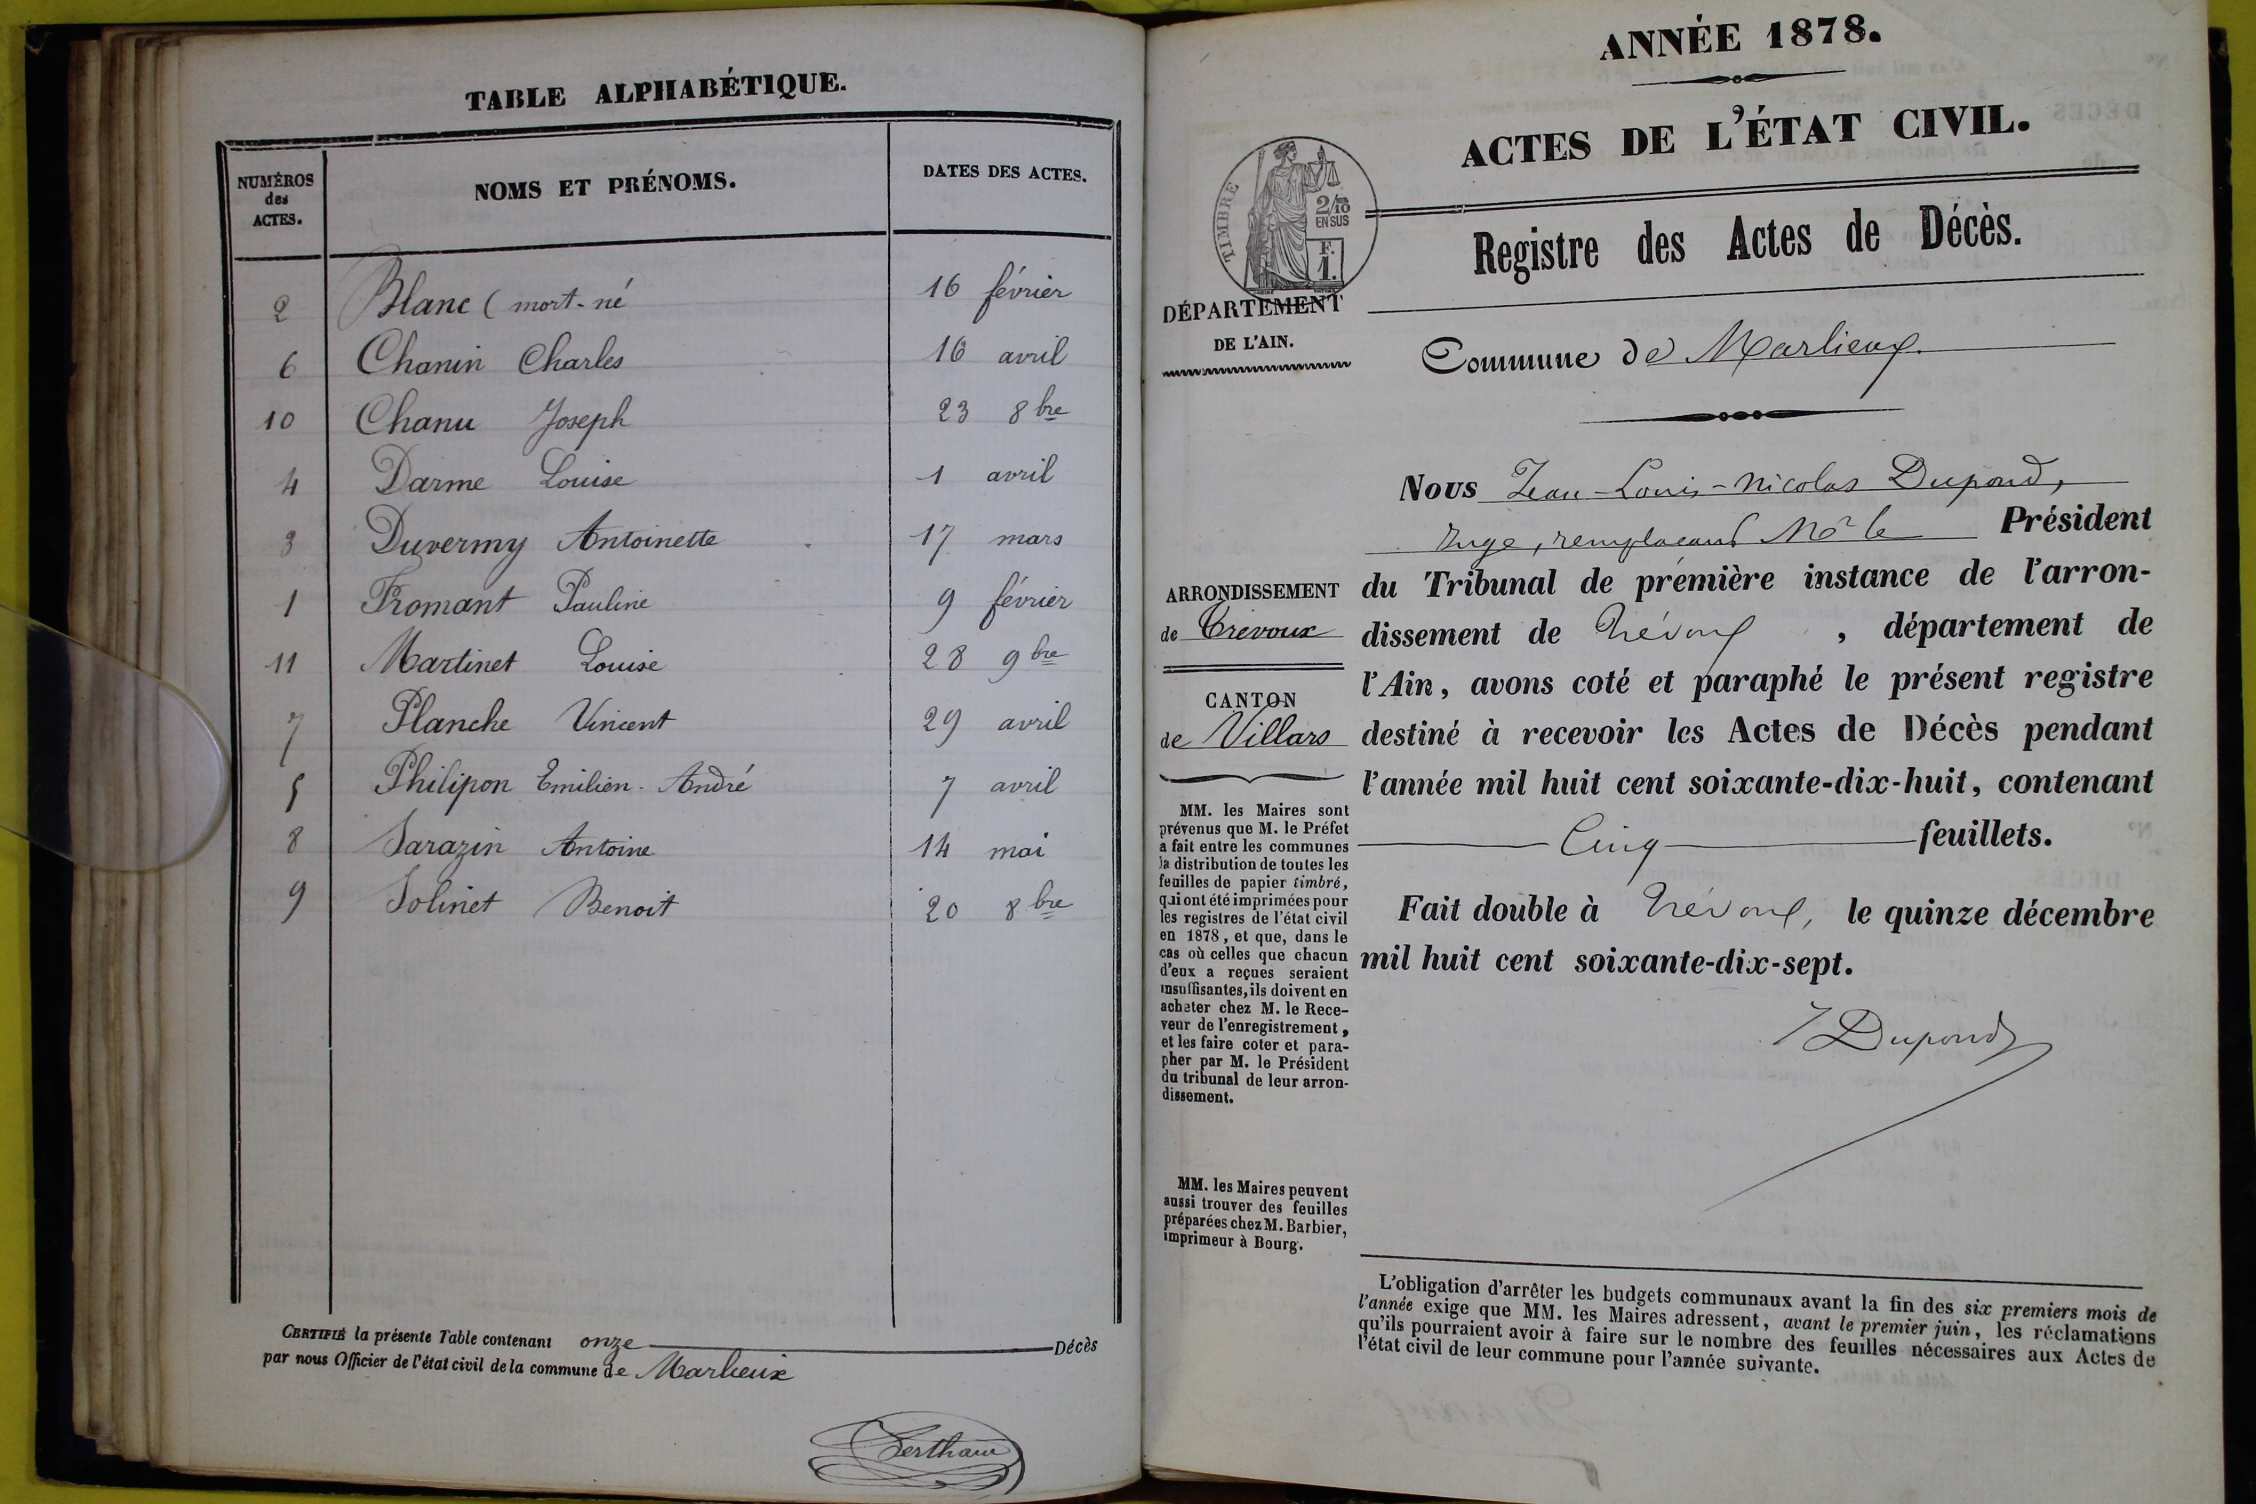 TABLE ALPHABÉTIQUE.
NUMÉROS des ACTES. NOMS ET PRÉNOMS. DATES DES ACTES.
2 Blanc ( mort-né 16 février
6 Chanin Charles 16 avril
10 Chanu Joseph 23 8bre
4 Darme Louise 1 avril
3 Duvermy Antoinette 17 mars
1 Fromant Pauline 9 février
11 Martinet Louise 28 9bre
7 Planche Vincent 29 avril
5 Philipon Emilien-André 7 avril
8 Sarazin Antoine 14 mai
9 Solinet Benoit 20 8bre
CERTIFIÉ la présente Table contenant onze Décès
par nous Officier de l'état civil de la commune de Marlieux
ANNÉE 1878.
ACTES DE L'ÉTAT CIVIL.
TIMBRE
2/10
EN SUS
F.
1.
Registre des Actes de Décès.
DÉPARTEMENT
DE L'AIN.
Commune de Marlieux.
Nous Jean-Louis-Nicolas Dupond,
Juge, remplaçant Mr le Président
du Tribunal de prémière instance de l'arron-
dissement de Trévoux, département de
l'Ain, avons coté et paraphé le présent registre
destiné à recevoir les Actes de Décès pendant
l'année mil huit cent soixante-dix-huit, contenant
Cinq feuillets.
Fait double à Trévoux, le quinze décembre
mil huit cent soixante-dix-sept.
Dupond
ARRONDISSEMENT
de Trévoux
CANTON
de Villars
MM. les Maires sont
prévenus que M. le Préfet
a fait entre les communes
la distribution de toutes les
feuilles de papier timbré,
qui ont été imprimées pour
les registres de l'état civil
en 1878, et que, dans le
cas où celles que chacun
d'eux a reçues seraient
insuffisantes, ils doivent en
acheter chez M. le Rece-
veur de l'enregistrement,
et les faire coter et para-
pher par M. le Président
du tribunal de leur arron-
dissement.
MM. les Maires peuvent
aussi trouver des feuilles
préparées chez M. Barbier,
imprimeur à Bourg.
L'obligation d'arrêter les budgets communaux avant la fin des six premiers mois de
l'année exige que MM. les Maires adressent, avant le premier juin, les réclamations
qu'ils pourraient avoir à faire sur le nombre des feuilles nécessaires aux Actes de
l'état civil de leur commune pour l'année suivante.